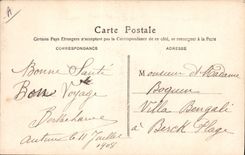 A
Carte Postale
Certains Pays Étrangers n'acceptent pas la Correspondance de ce côté, se renseigner à la Poste
CORRESPONDANCE
ADRESSE
Bonne Santé
Bon Voyage
Autun le 11 Juillet
1908
Monsieur et Madame
Villa Bengali
à Berck Plage